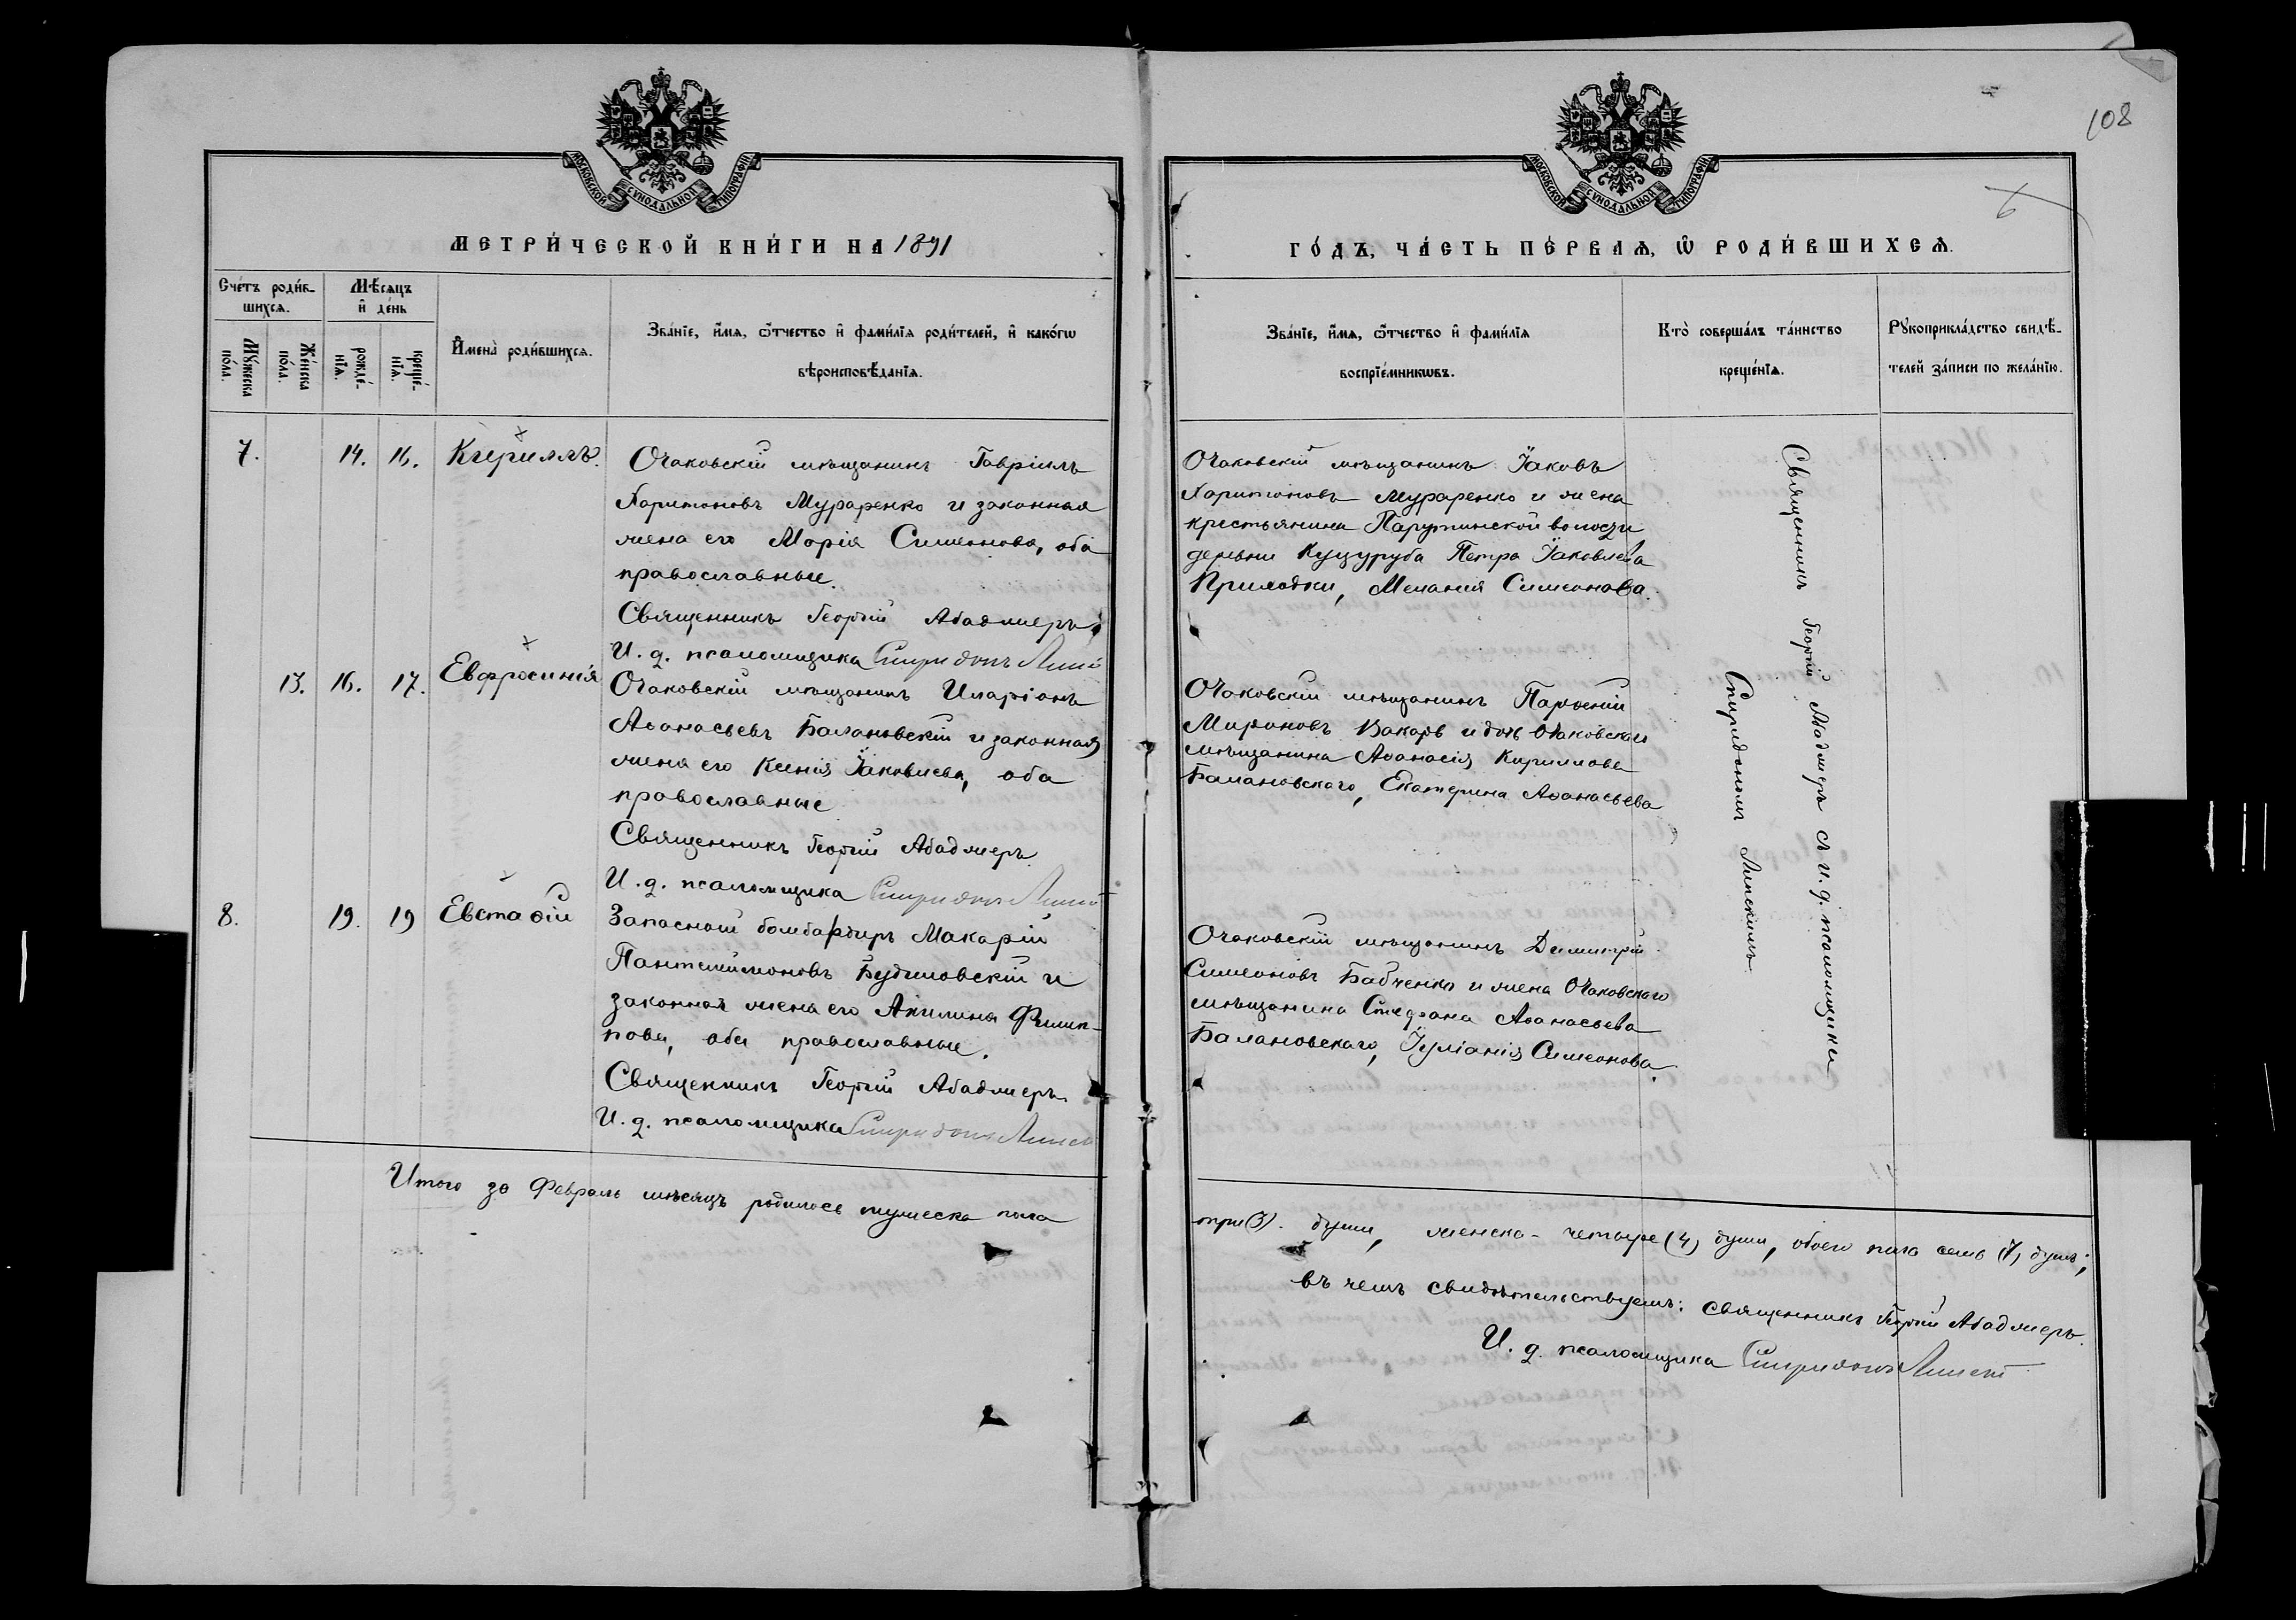 108
МОСКОВСКОЙ СУНОДАЛЬНОЙ ТИПОГРАФІИ
МОСКОВСКОЙ СУНОДАЛЬНОЙ ТИПОГРАФІИ
МЕТРИ́ЧЕСКОЙ КНИ́ГИ НА 1891
ГО́ДЪ, ЧА́СТЬ ПЕ́РВАѦ, Ѽ РОДИ́ВШИХСѦ.
Сче́тъ роди́в-
шихсѧ.
Мꙋ́жеска
по́ла.
Же́нска
по́ла.
Мѣ́сѧцъ
и҆ де́нь
рожде́-
нїѧ.
креще́-
нїѧ.
И҆мена̀ роди́вшихсѧ.
Зва́нїе, и҆́мѧ, ѻ҆́тчество и҆ фами́лїѧ роди́телей, и҆ како́гѡ
вѣроисповѣ́данїѧ.
Зва́нїе, и҆́мѧ, ѻ҆́тчество и҆ фами́лїѧ
воспрїе́мникѡвъ.
Кто̀ соверша́лъ та́инство
креще́нїѧ.
Рꙋкоприкла́дство свидѣ́-
телей за́писи по жела́нїю.
7.
14. 16.
Кириллъ.
Очаковскій мѣщанинъ Гавріилъ
Харитоновъ Мураренко и законная
жена его Марія Симеонова, оба
православные.
Священникъ Георгій Абаджеръ
И. д. псаломщика Спиридонъ
Очаковскій мѣщанинъ Іаковъ
Харитоновъ Мураренко и жена
крестьянина Парутинской волости
деревни Куцуруба Петра Іаковлева
Прилодки, Меланія Симеонова.
13. 16. 17.
Евфросинія
Очаковскій мѣщанинъ Иларіонъ
Аѳанасьевъ Балановскій и законная
жена его Ксенія Іаковлева, оба
православные
Священникъ Георгій Абаджеръ.
И. д. псаломщика Спиридонъ
Очаковскій мѣщанинъ Парѳеній
Мироновъ Вакаръ и дочь Очаковскаго
мѣщанина Аѳанасія Кириллова
Балановскаго, Екатерина Аѳанасьева
8.
19. 19
Евстаѳій
Запасный бомбардиръ Макарій
Пантелиімоновъ Будиловскій и
законная жена его Акилина Филип-
пова, оба православные.
Священникъ Георгій Абаджеръ.
И. д. псаломщика Спиридонъ
Очаковскій мѣщанинъ Димитрій
Симеоновъ Бабченко и жена Очаковскаго
мѣщанина Стефана Аѳанасьева
Балановскаго, Іуліанія Симеонова.
Священникъ Георгій Абаджеръ съ и. д. псаломщика
Спиридономъ Липскимъ.
Итого за Февраль мѣсяцъ родилось мужеска пола
три (3). души, женска - четыре (4) души, обоего пола семь (7) душъ;
въ чемъ свидѣтельствуемъ: Священникъ Георгій Абаджеръ.
И. д. псаломщика Спиридонъ